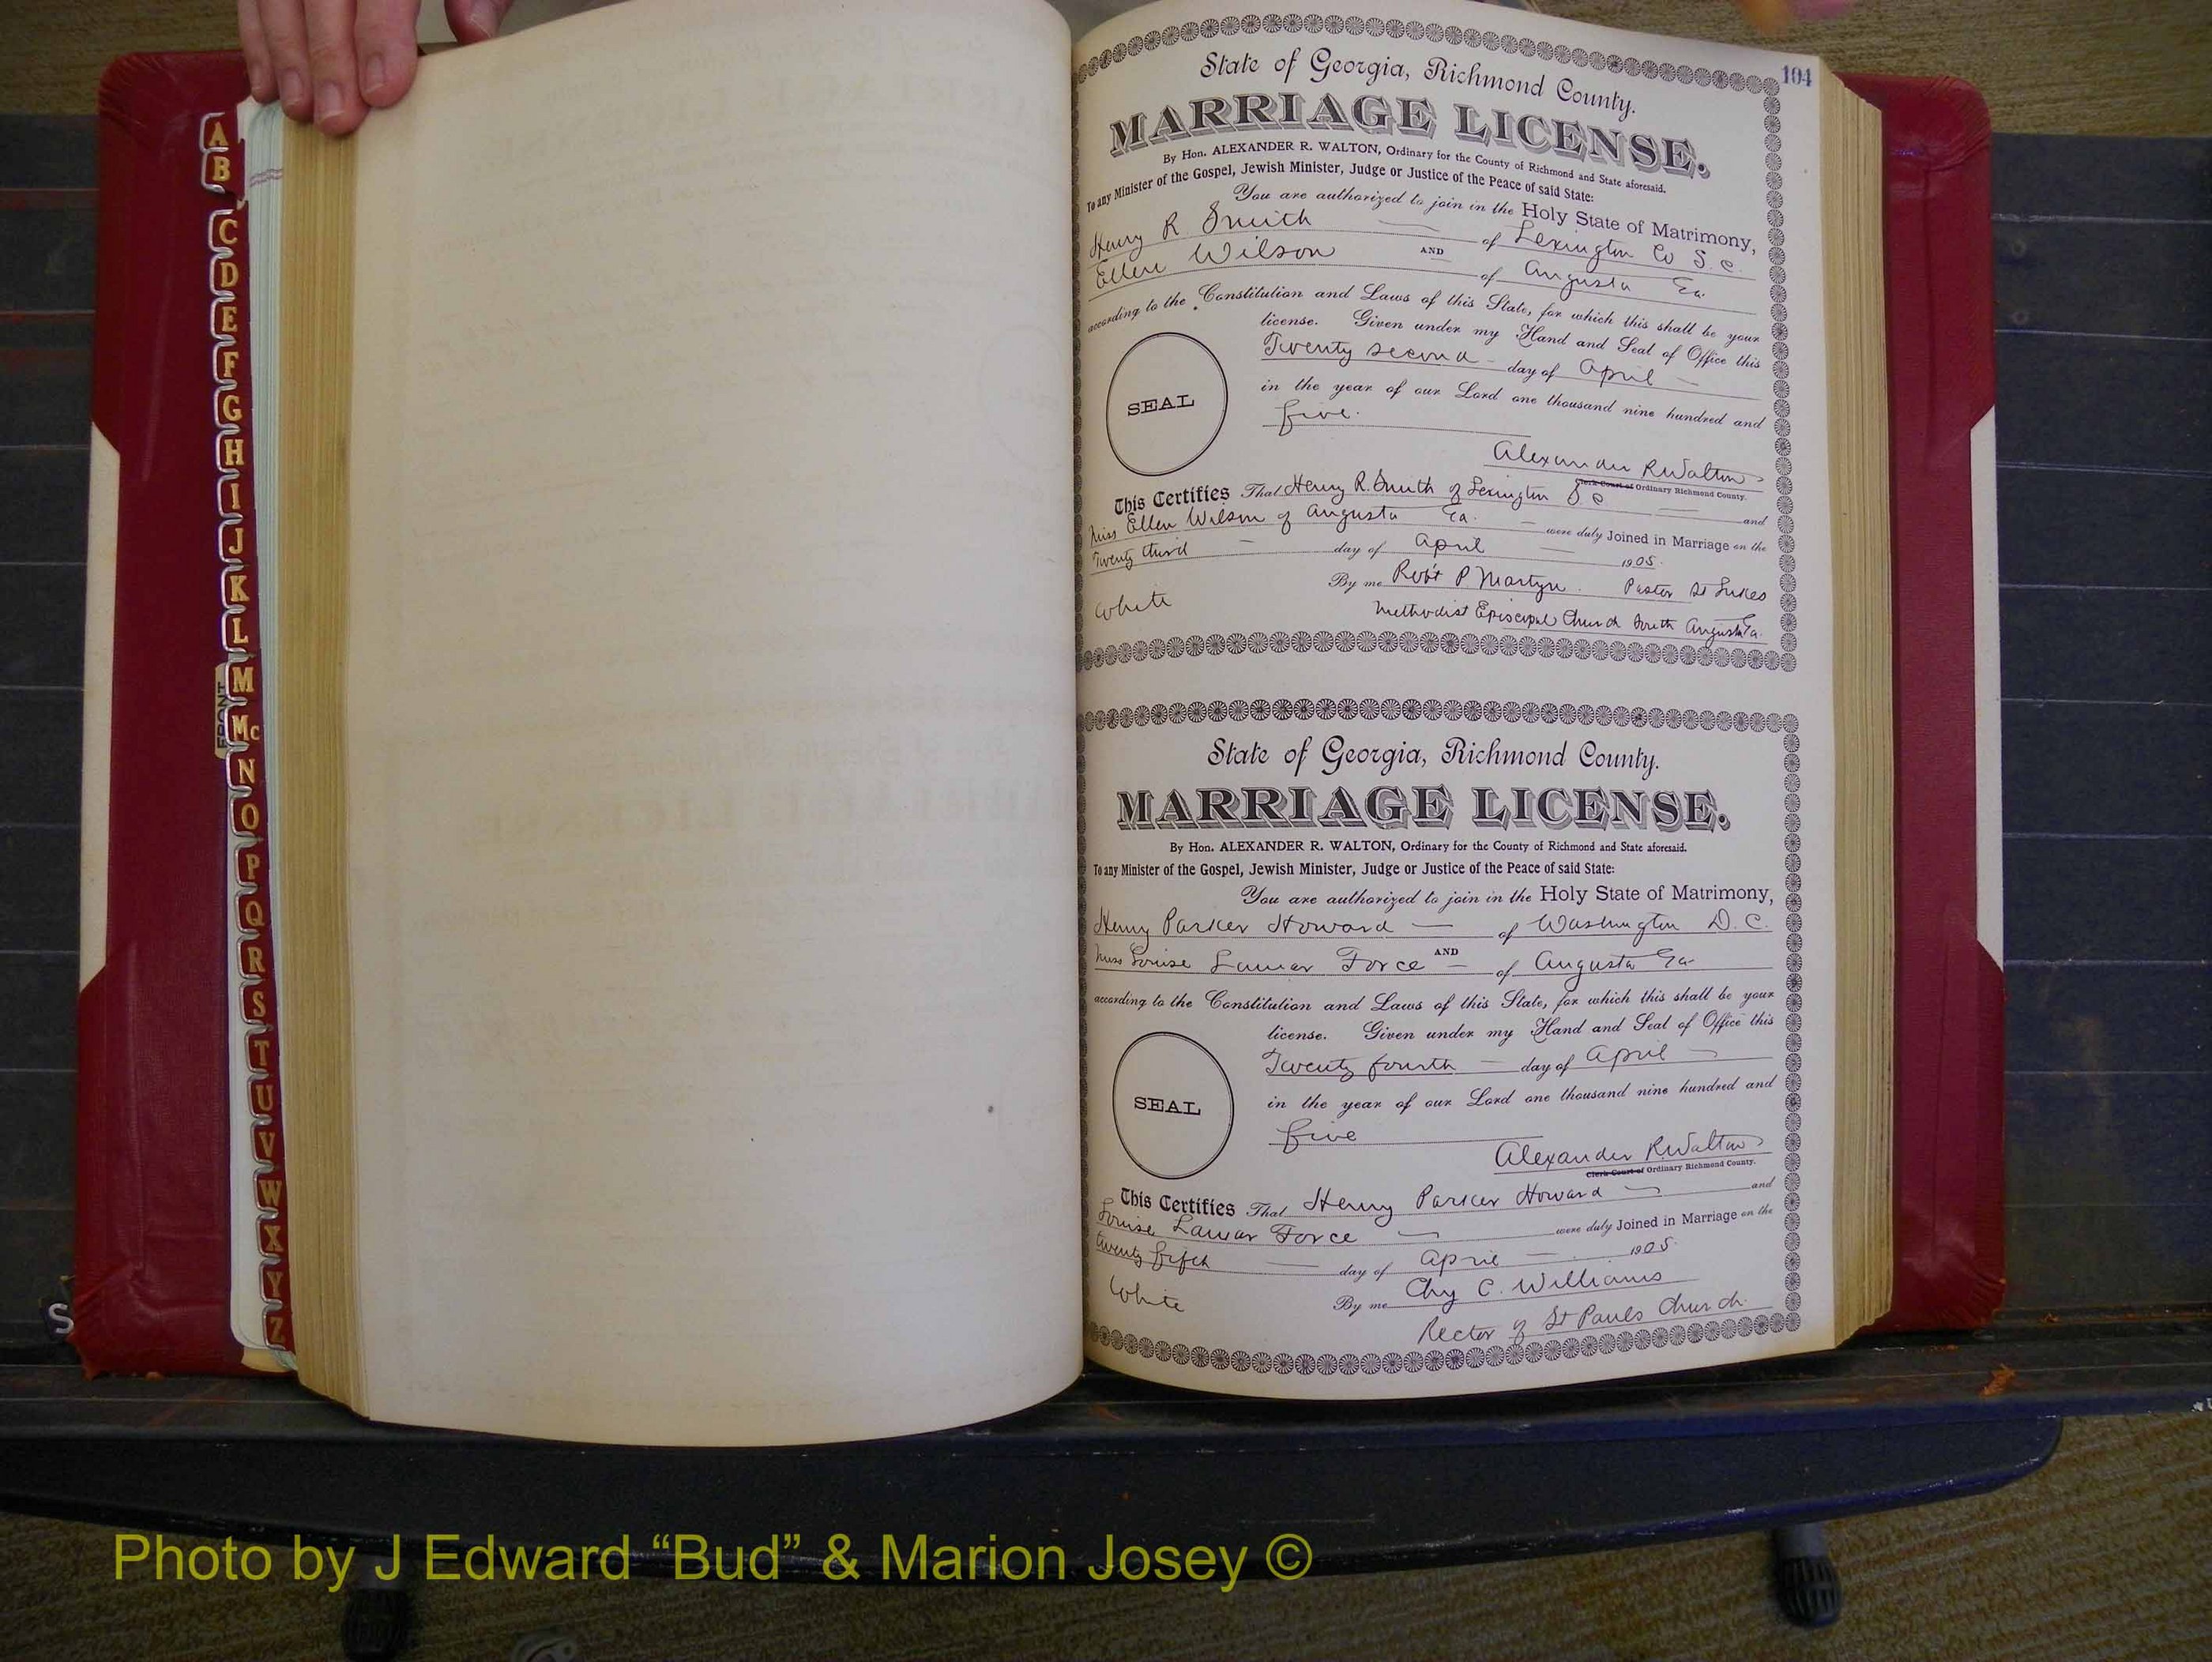 A
B
C
D
E
F
G
H
I
J
K
L
M
Mc
N
O
P
Q
R
S
T
U
V
W
X
Y
Z
FRONT
S
104
State of Georgia, Richmond County.
MARRIAGE LICENSE.
By Hon. ALEXANDER R. WALTON, Ordinary for the County of Richmond and State aforesaid.
To any Minister of the Gospel, Jewish Minister, Judge or Justice of the Peace of said State:
You are authorized to join in the Holy State of Matrimony,
Henry R Smith of Lexington Co S. C.
AND
Ellen Wilson of Augusta Ga.
according to the Constitution and Laws of this State, for which this shall be your
license. Given under my Hand and Seal of Office this
Twenty second day of April
in the year of our Lord one thousand nine hundred and
five.
SEAL
Alexander R Walton
Clerk Court of Ordinary Richmond County.
This Certifies That Henry R. Smith of Lexington S C and
Miss Ellen Wilson of Augusta Ga. were duly Joined in Marriage on the
Twenty third day of April 1905.
By me Robt P Martyn. Pastor St Lukes
White
Methodist Episcopal Church South Augusta Ga.
State of Georgia, Richmond County.
MARRIAGE LICENSE.
By Hon. ALEXANDER R. WALTON, Ordinary for the County of Richmond and State aforesaid.
To any Minister of the Gospel, Jewish Minister, Judge or Justice of the Peace of said State:
You are authorized to join in the Holy State of Matrimony,
Henry Parker Howard of Washington D. C.
AND
Miss Louise Lamar Force of Augusta Ga
according to the Constitution and Laws of this State, for which this shall be your
license. Given under my Hand and Seal of Office this
Twenty fourth day of April
in the year of our Lord one thousand nine hundred and
five
SEAL
Alexander R Walton
Clerk Court of Ordinary Richmond County.
This Certifies That Henry Parker Howard and
Louise Lamar Force were duly Joined in Marriage on the
twenty fifth day of April 1905.
White
By me Chy C. Williams
Rector of St Pauls Church.
Photo by J Edward “Bud” & Marion Josey ©